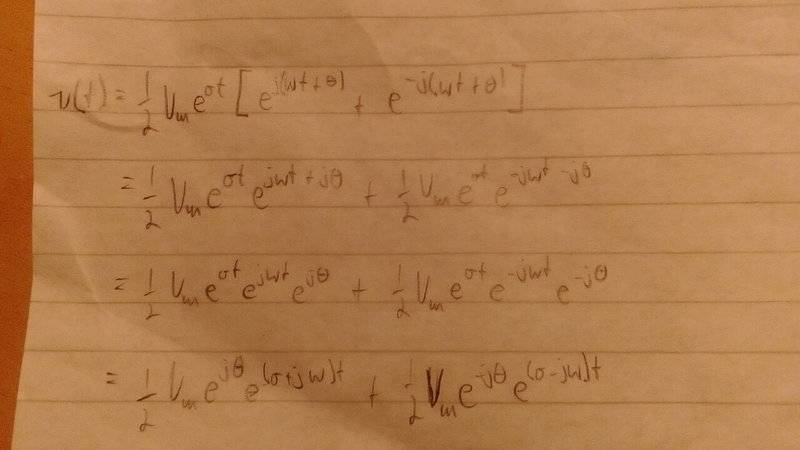 v(t) = 1/2 Vm e^σt [ e^j(ωt + θ) + e^-j(ωt + θ) ]
= 1/2 Vm e^σt e^jωt + jθ + 1/2 Vm e^σt e^-jωt - jθ
= 1/2 Vm e^σt e^jωt e^jθ + 1/2 Vm e^σt e^-jωt e^-jθ
= 1/2 Vm e^jθ e^(σ+jω)t + 1/2 Vm e^-jθ e^(σ-jω)t